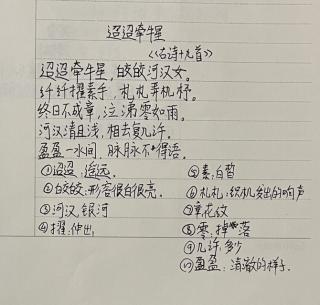 迢迢牵牛星
《古诗十九首》
迢迢牵牛星，皎皎河汉女。
纤纤擢素手，札札弄机杼。
终日不成章，泣涕零如雨。
河汉清且浅，相去复几许。
盈盈一水间，脉脉不得语。
①迢迢：遥远。
②皎皎：形容很白很亮。
③河汉：银河
④擢：伸出
⑤素：白皙
⑥札札：织机发出的响声
⑦章：花纹
⑧零：掉落
⑨几许：多少
⑩盈盈：清澈的样子。